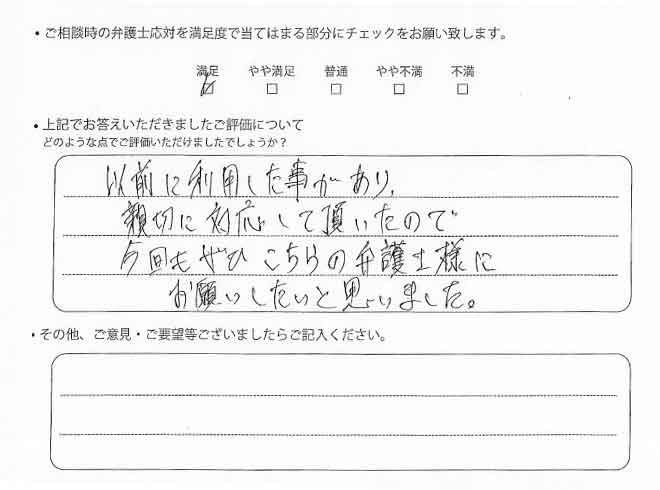 ・ご相談時の弁護士応対を満足度で当てはまる部分にチェックをお願い致します。
満足 やや満足 普通 やや不満 不満
・上記でお答えいただきましたご評価について
どのような点でご評価いただけましたでしょうか？
以前に利用した事があり、
親切に対応して頂いたので
今回もぜひこちらの弁護士様に
お願いしたいと思いました。
・その他、ご意見・ご要望等ございましたらご記入ください。